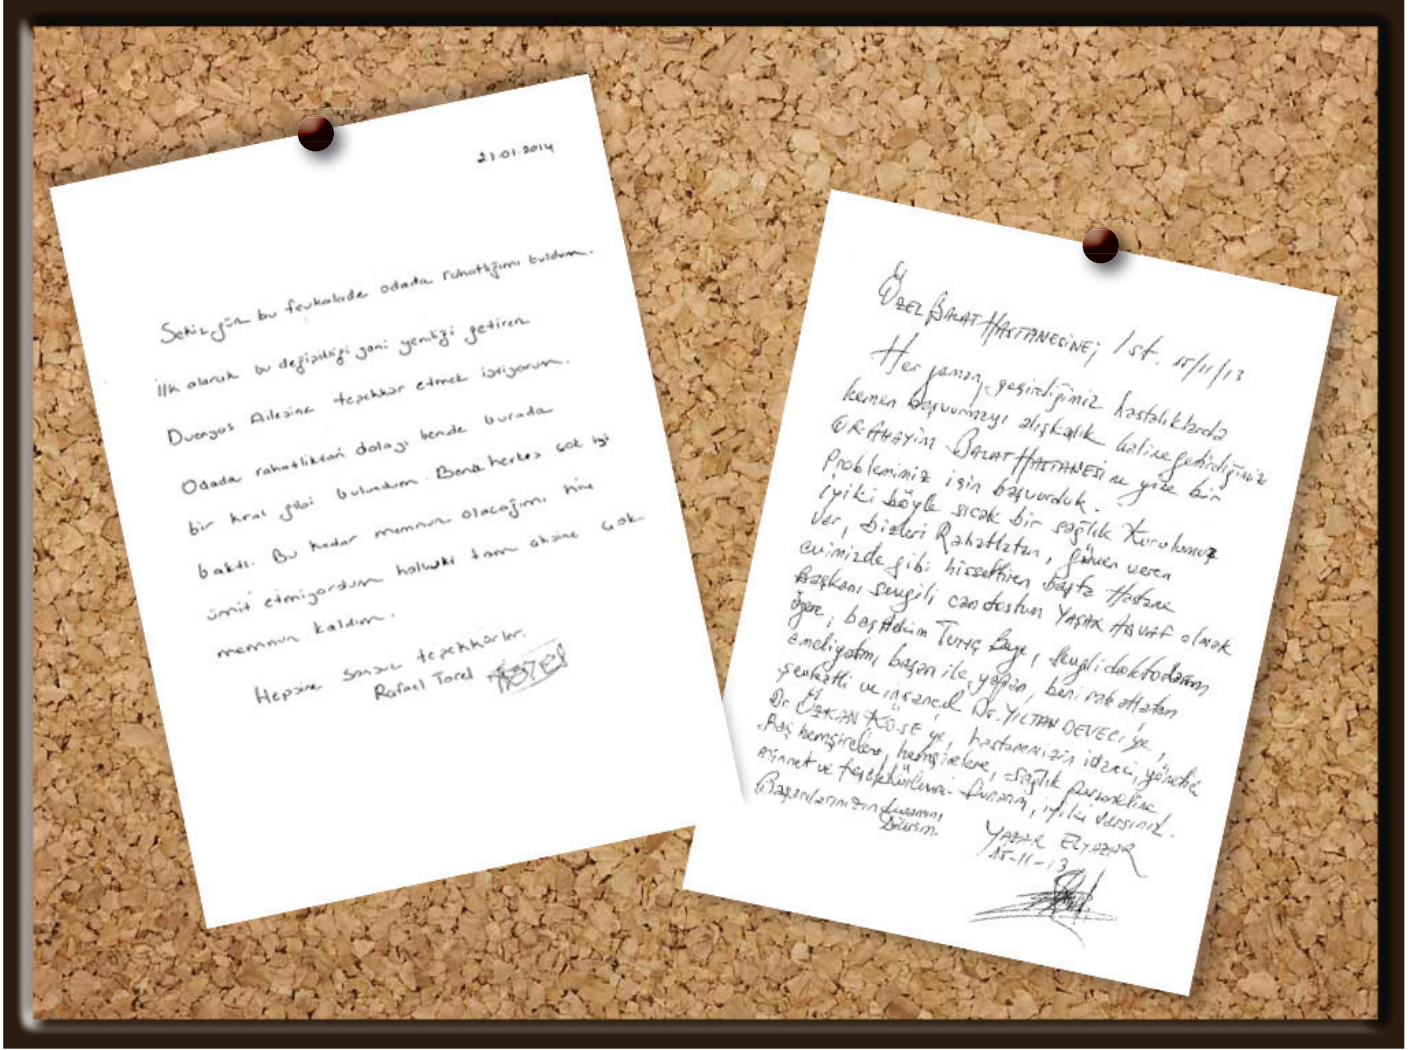 21.01.2014
Sekiz gün bu fevkalade odada rahatlığımı buldum.
İlk olarak bu değişikliği yani yeniliği getiren
Duenyas Ailesine teşekkür etmek istiyorum.
Odada rahatlıktan dolayı bende burada
bir kral gibi bulundum. Bana herkes çok iyi
baktı. Bu kadar memnun olacağımı hiç
ümit etmiyordum halbuki tam aksine çok
memnun kaldım.
Hepsine sonsuz teşekkürler.
Rafael Torel
ÖZEL BALAT HASTANESİNE; İst. 15/11/13
Her zaman, geçirdiğimiz hastalıklarda
hemen başvurmayı alışkalık haline getirdiğimiz
ORAHAYİM BALAT HASTANESİ ne yine bir
Problemimiz için başvurduk.
İyiki böyle sıcak bir sağlık Kurulumuz
var, bizleri Rahatlatan, güven veren
evimizde gibi hissettiren başta Hastane
Başkanı sevgili can dostum YAŞAR olmak
üzere, Beye, sevgili doktorlarım
ameliyatımı başarı ile yapan, beni rahatlatan
şevkatli ve insancıl Dr. YILTAN DEVECİ'ye,
Dr. ÖZKAN KÖSE'ye, hastanemizin idareci, yönetici
Baş hemşirelere, hemşirelere, sağlık personeline,
minnet ve teşekkürlerimi sunarım, iyiki varsınız.
Başarılarınızın devamını
dilerim.
15-11-13